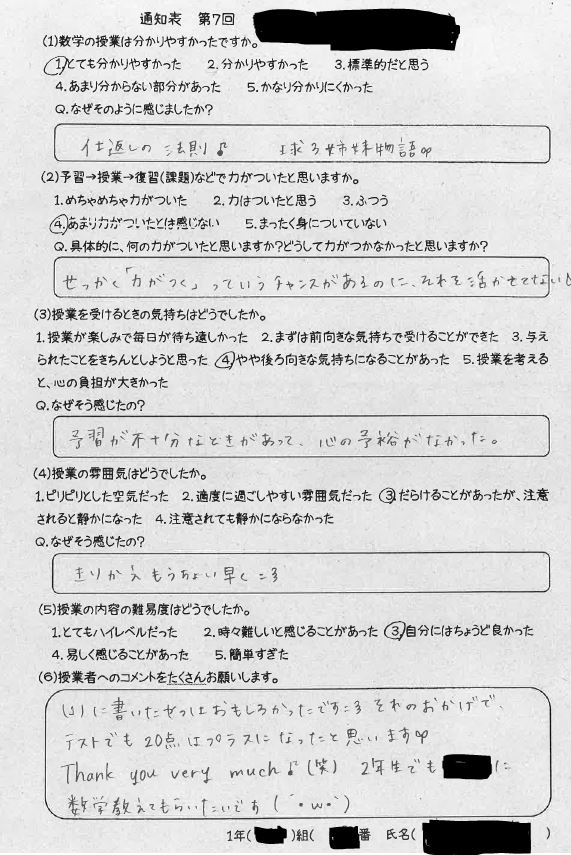 通知表 第7回
(1)数学の授業は分かりやすかったですか。
1.とても分かりやすかった 2.分かりやすかった 3.標準的だと思う
4.あまり分からない部分があった 5.かなり分かりにくかった
Q.なぜそのように感じましたか?
仕返しの法則♪ 球ろ姉妹物語∞
(2)予習→授業→復習(課題)などで力がついたと思いますか。
1.めちゃめちゃ力がついた 2.力はついたと思う 3.ふつう
4.あまり力がついたとは感じない 5.まったく身についていない
Q.具体的に、何の力がついたと思いますか?どうして力がつかなかったと思いますか?
せっかく「力がつく」っていうチャンスがあるのに、それを活かせてない
(3)授業を受けるときの気持ちはどうでしたか。
1.授業が楽しみで毎日が待ち遠しかった 2.まずは前向きな気持ちで受けることができた 3.与え
られたことをきちんとしようと思った 4.やや後ろ向きな気持ちになることがあった 5.授業を考える
と、心の負担が大きかった
Q.なぜそう感じたの?
予習が不十分なときがあって、心の予裕がなかった。
(4)授業の雰囲気はどうでしたか。
1.ピリピリとした空気だった 2.適度に過ごしやすい雰囲気だった 3.だらけることがあったが、注意
されると静かになった 4.注意されても静かにならなかった
Q.なぜそう感じたの?
きりかえもうちょい早く
(5)授業の内容の難易度はどうでしたか。
1.とてもハイレベルだった 2.時々難しいと感じることがあった 3.自分にはちょうど良かった
4.易しく感じることがあった 5.簡単すぎた
(6)授業者へのコメントをたくさんお願いします。
(1)に書いたやつはおもしろかったです それのおかげで、
テストでも20点はプラスになったと思います∞
Thank you very much♪(笑) 2年生でも に
数学教えてもらいたいです(´・ω・`)
1年( )組( )番 氏名( )